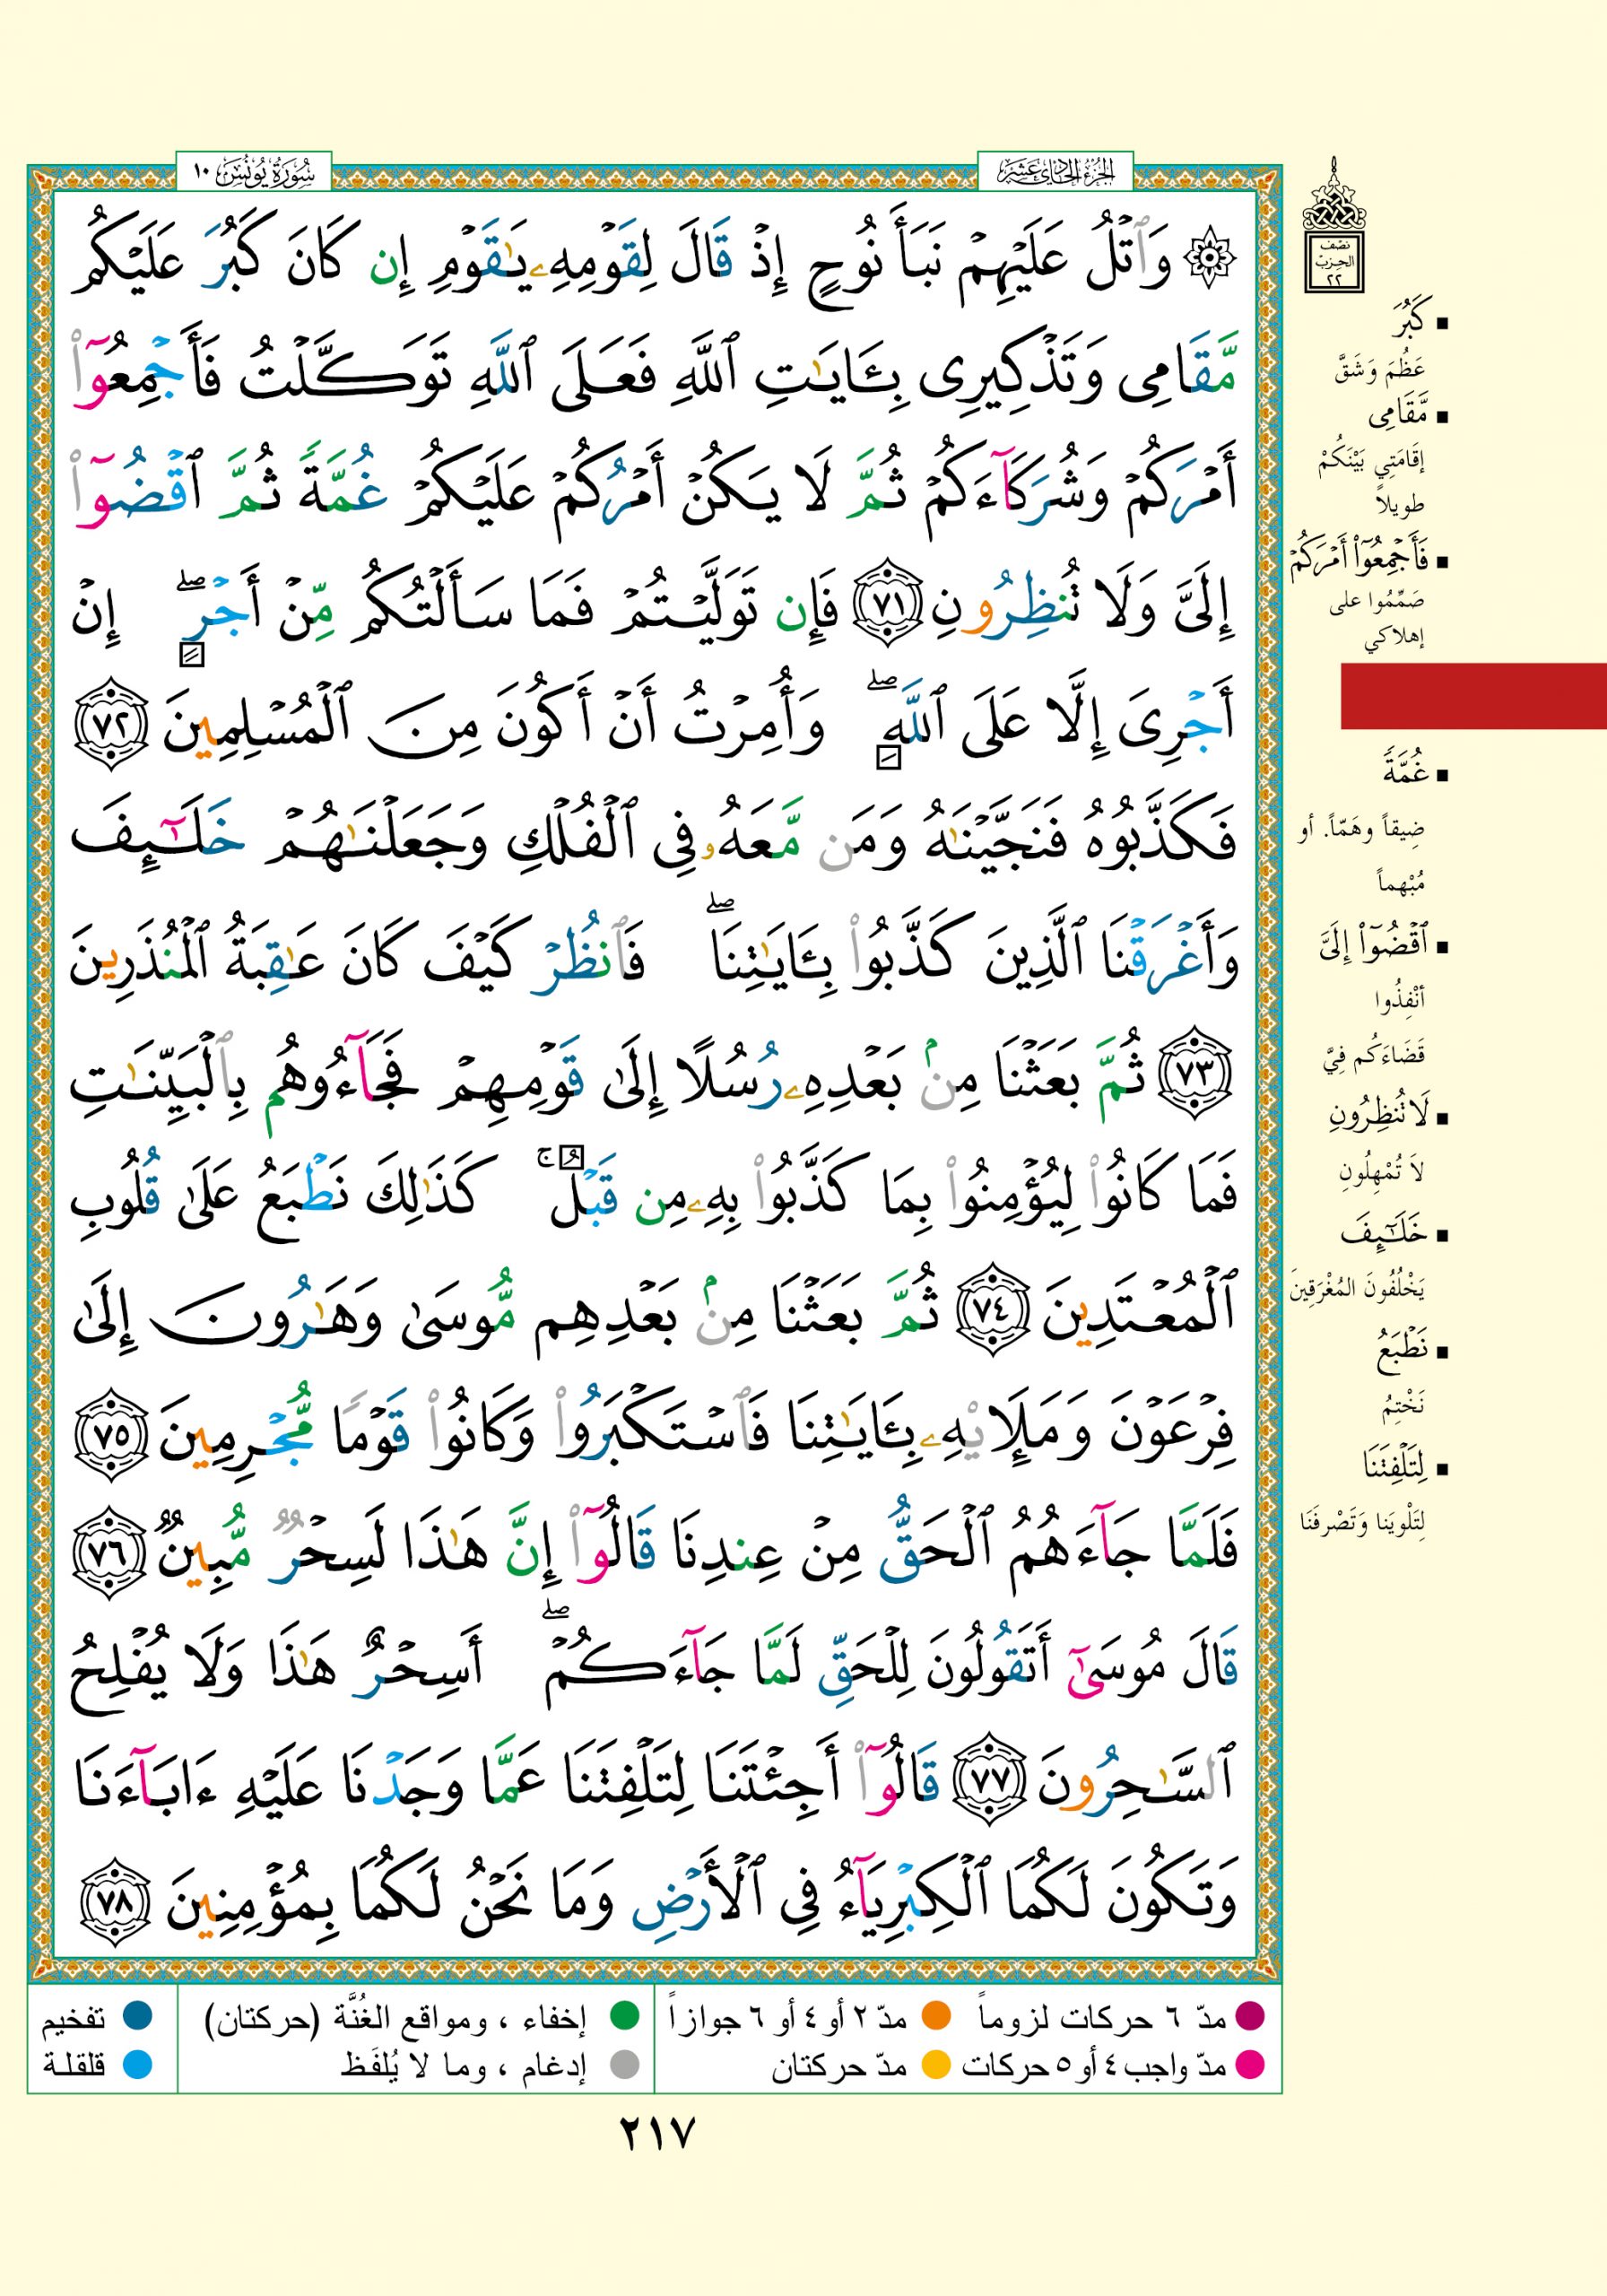 الجزء الحادي عشر
سورة يونس ١٠
۞ وَٱتْلُ عَلَيْهِمْ نَبَأَ نُوحٍ إِذْ قَالَ لِقَوْمِهِۦ يَٰقَوْمِ إِن كَانَ كَبُرَ عَلَيْكُم
مَّقَامِى وَتَذْكِيرِى بِـَٔايَٰتِ ٱللَّهِ فَعَلَى ٱللَّهِ تَوَكَّلْتُ فَأَجْمِعُوٓا۟
أَمْرَكُمْ وَشُرَكَآءَكُمْ ثُمَّ لَا يَكُنْ أَمْرُكُمْ عَلَيْكُمْ غُمَّةً ثُمَّ ٱقْضُوٓا۟
إِلَىَّ وَلَا تُنظِرُونِ ٧١ فَإِن تَوَلَّيْتُمْ فَمَا سَأَلْتُكُم مِّنْ أَجْرٍ ۖ إِنْ
أَجْرِىَ إِلَّا عَلَى ٱللَّهِ ۖ وَأُمِرْتُ أَنْ أَكُونَ مِنَ ٱلْمُسْلِمِينَ ٧٢
فَكَذَّبُوهُ فَنَجَّيْنَٰهُ وَمَن مَّعَهُۥ فِى ٱلْفُلْكِ وَجَعَلْنَٰهُمْ خَلَٰٓئِفَ
وَأَغْرَقْنَا ٱلَّذِينَ كَذَّبُوا۟ بِـَٔايَٰتِنَا ۖ فَٱنظُرْ كَيْفَ كَانَ عَٰقِبَةُ ٱلْمُنذَرِينَ
٧٣ ثُمَّ بَعَثْنَا مِنۢ بَعْدِهِۦ رُسُلًا إِلَىٰ قَوْمِهِمْ فَجَآءُوهُم بِٱلْبَيِّنَٰتِ
فَمَا كَانُوا۟ لِيُؤْمِنُوا۟ بِمَا كَذَّبُوا۟ بِهِۦ مِن قَبْلُ ۚ كَذَٰلِكَ نَطْبَعُ عَلَىٰ قُلُوبِ
ٱلْمُعْتَدِينَ ٧٤ ثُمَّ بَعَثْنَا مِنۢ بَعْدِهِم مُّوسَىٰ وَهَٰرُونَ إِلَىٰ
فِرْعَوْنَ وَمَلَإِي۟هِۦ بِـَٔايَٰتِنَا فَٱسْتَكْبَرُوا۟ وَكَانُوا۟ قَوْمًا مُّجْرِمِينَ ٧٥
فَلَمَّا جَآءَهُمُ ٱلْحَقُّ مِنْ عِندِنَا قَالُوٓا۟ إِنَّ هَٰذَا لَسِحْرٌ مُّبِينٌ ٧٦
قَالَ مُوسَىٰٓ أَتَقُولُونَ لِلْحَقِّ لَمَّا جَآءَكُمْ ۖ أَسِحْرٌ هَٰذَا وَلَا يُفْلِحُ
ٱلسَّٰحِرُونَ ٧٧ قَالُوٓا۟ أَجِئْتَنَا لِتَلْفِتَنَا عَمَّا وَجَدْنَا عَلَيْهِ ءَابَآءَنَا
وَتَكُونَ لَكُمَا ٱلْكِبْرِيَآءُ فِى ٱلْأَرْضِ وَمَا نَحْنُ لَكُمَا بِمُؤْمِنِينَ ٧٨
نصف
الحزب
٢٢
▪ كَبُرَ
عَظُمَ وَشَقَّ
▪ مَّقَامِى
إقَامَتِي بَيْنَكُمْ
طويلاً
▪ فَأَجْمِعُوٓا۟ أَمْرَكُمْ
صَمِّمُوا على
إهلاكي
▪ غُمَّةً
ضِيقاً وهَمّاً. أو
مُبْهماً
▪ ٱقْضُوٓا۟ إِلَىَّ
أنْفِذُوا
قَضَاءَكُم فِيَّ
▪ لَا تُنظِرُونِ
لاَ تُمْهِلُونِ
▪ خَلَٰٓئِفَ
يَخْلُفُونَ المُغْرَقِينَ
▪ نَطْبَعُ
نَخْتِمُ
▪ لِتَلْفِتَنَا
لِتَلْوِيَنا وَتَصْرفَنَا
مدّ ٦ حركات لزوماً ● مدّ ٢ أو ٤ أو ٦ جوازاً
مدّ واجب ٤ أو ٥ حركات ● مدّ حركتان
إخفاء ، ومواقع الغُنَّة (حركتان)
إدغام ، وما لا يُلفَظ
تفخيم
قلقلة
٢١٧